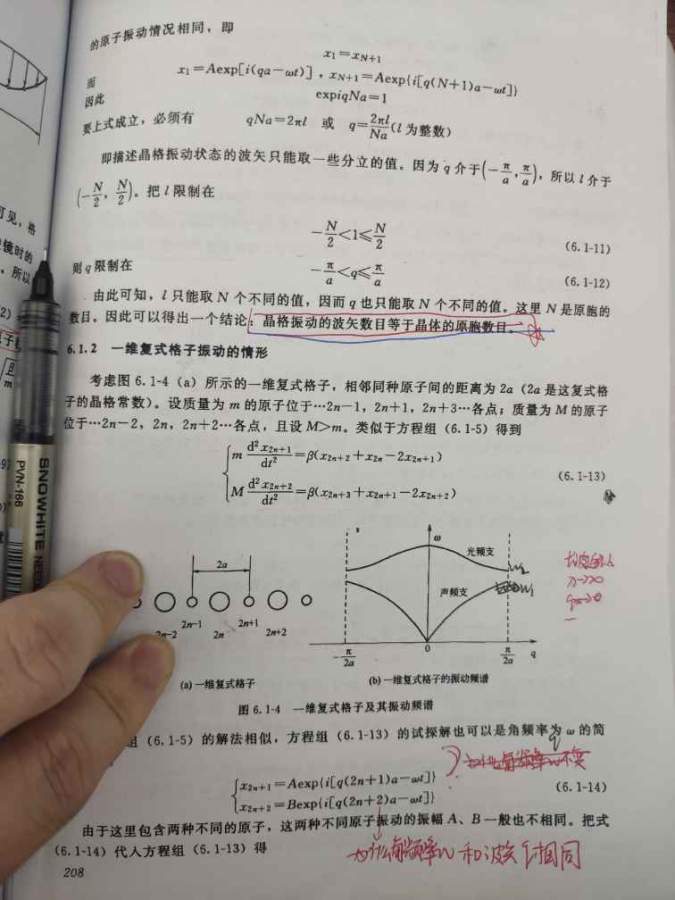 的原子振动情况相同，即
x₁=x_{N+1}
x₁=Aexp[i(qa-ωt)]，x_{N+1}=Aexp{i[q(N+1)a-ωt]}
因此
expiqNa=1
要上式成立，必须有 qNa=2πl 或 q=2πl/Na(l 为整数)
即描述晶格振动状态的波矢只能取一些分立的值。因为 q 介于(-π/a, π/a)，所以 l 介于
(-N/2, N/2)。把 l 限制在
-N/2<l≤N/2 (6.1-11)
则 q 限制在
-π/a<q≤π/a (6.1-12)
由此可知，l 只能取 N 个不同的值，因而 q 也只能取 N 个不同的值。这里 N 是原胞的
数目。因此可以得出一个结论：晶格振动的波矢数目等于晶体的原胞数目。
6.1.2 一维复式格子振动的情形
考虑图 6.1-4（a）所示的一维复式格子，相邻同种原子间的距离为 2a（2a 是这复式格
子的晶格常数）。设质量为 m 的原子位于…2n-1，2n+1，2n+3…各点；质量为 M 的原子
位于…2n-2，2n，2n+2…各点，且设 M>m。类似于方程组（6.1-5）得到
m d²x_{2n+1}/dt²=β(x_{2n+2}+x_{2n}-2x_{2n+1})
M d²x_{2n+2}/dt²=β(x_{2n+3}+x_{2n+1}-2x_{2n+2})
(6.1-13)
2a
2n-2
2n-1
2n
2n+1
2n+2
(a) 一维复式格子
ω
光频支
声频支
-π/2a
0
π/2a
q
(b) 一维复式格子的振动频谱
图 6.1-4 一维复式格子及其振动频谱
组（6.1-5）的解法相似，方程组（6.1-13）的试探解也可以是角频率为 ω 的简
x_{2n+1}=Aexp{i[q(2n+1)a-ωt]}
x_{2n+2}=Bexp{i[q(2n+2)a-ωt]}
(6.1-14)
由于这里包含两种不同的原子，这两种不同原子振动的振幅 A、B 一般也不相同。把式
(6.1-14) 代入方程组（6.1-13）得
为什么角频率ω和波矢q相同
208
SNOWHITE
PVN-166